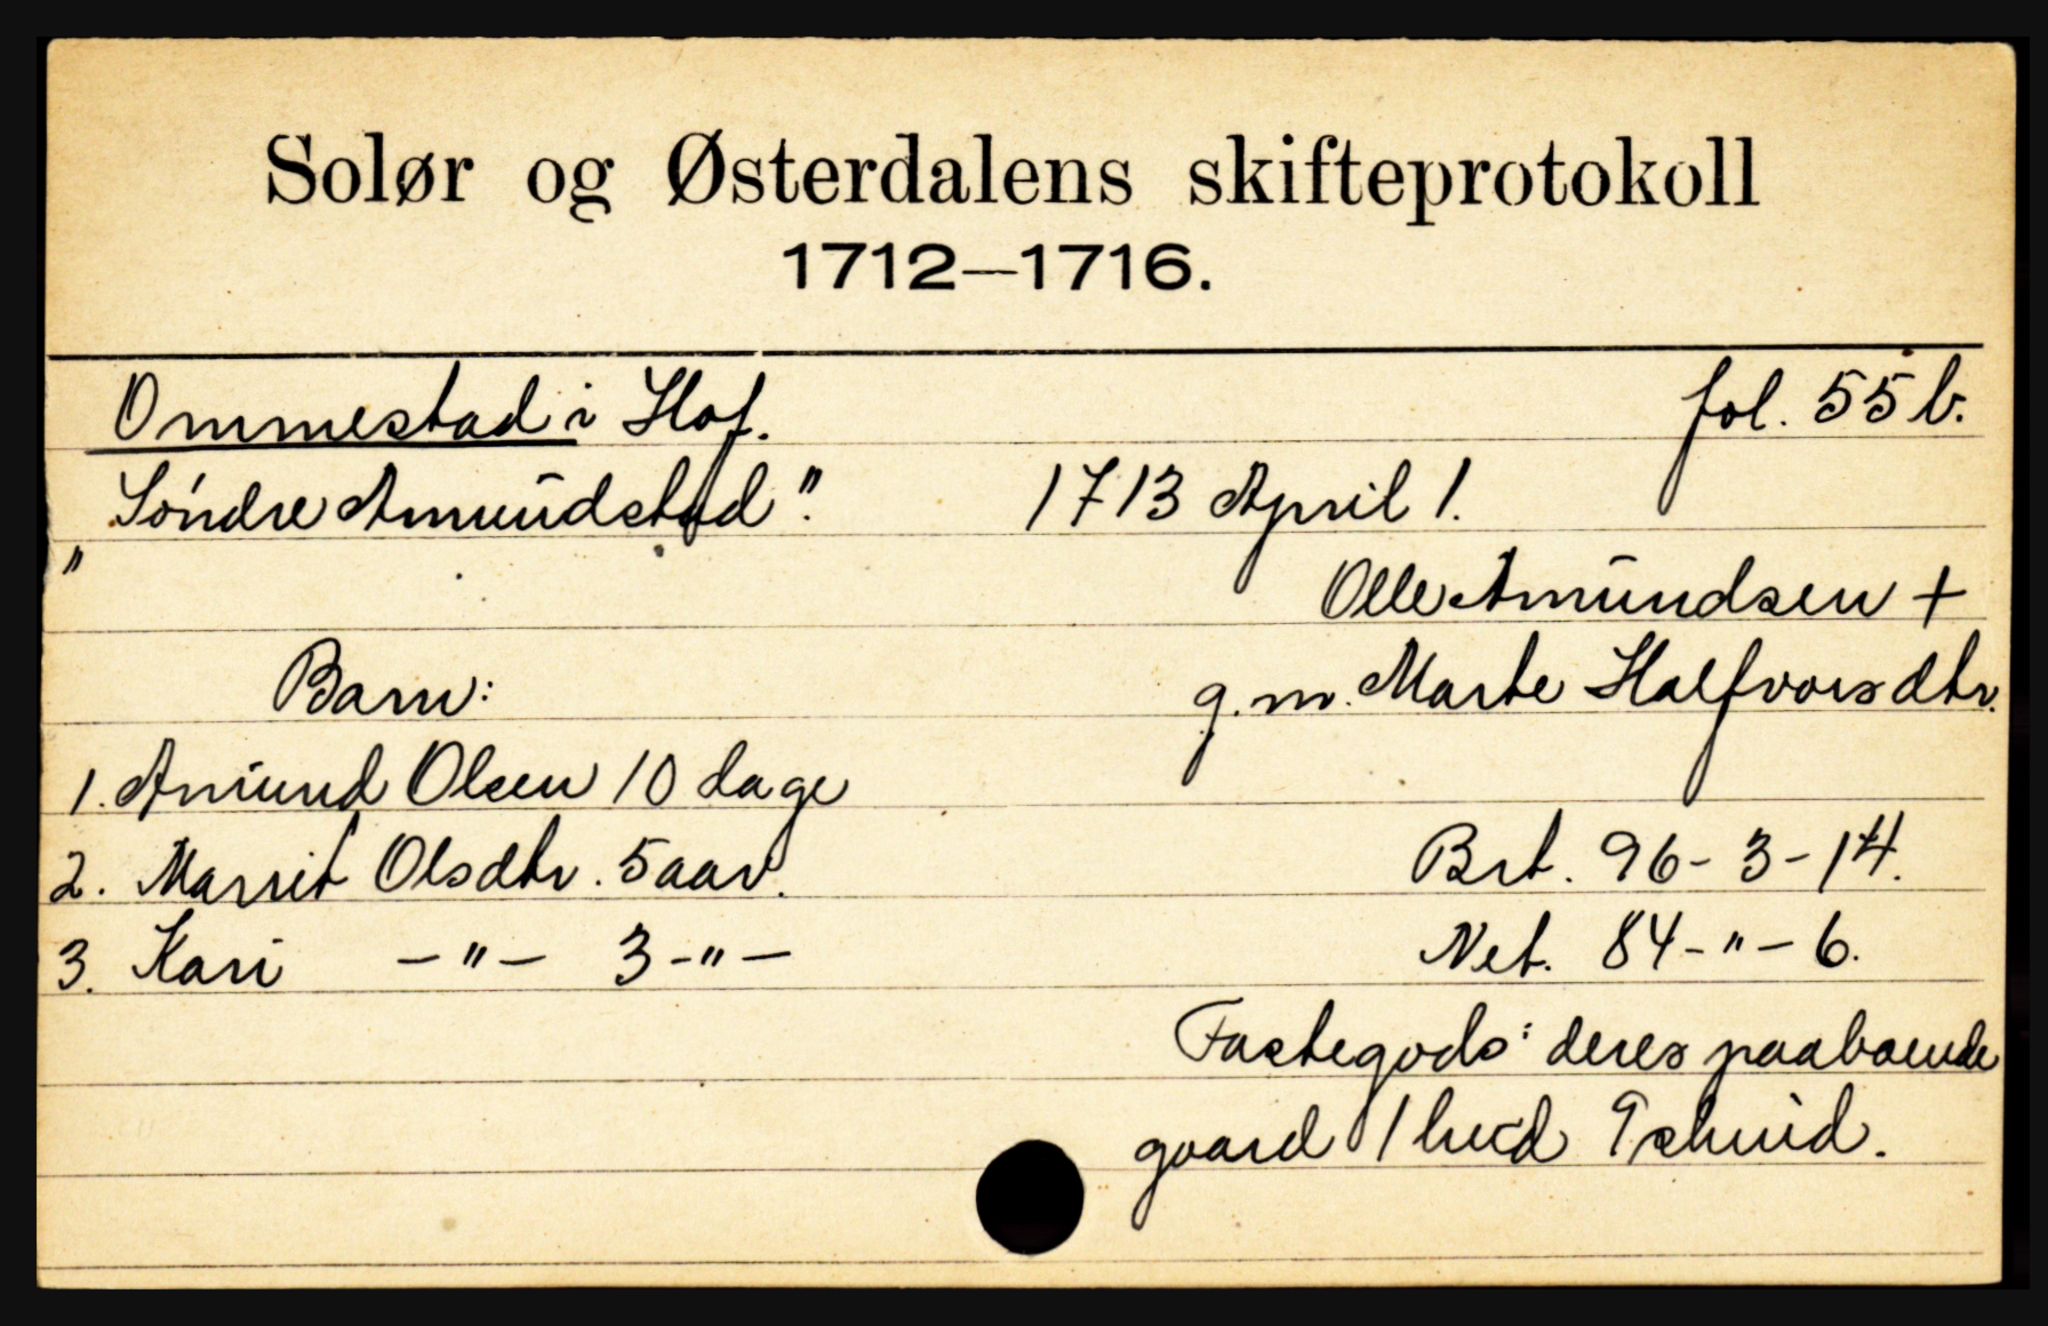 Solør og Østerdalens skifteprotokoll
1712—1716.
Ommestad i Hof. fol. 55 b.
"Söndre Amundstad". 1713 April 1.
Olle Amundsen +
Barn: g.m. Marte Halfvorsdtr.
1. Amund Olsen 10 dage
2. Marrit Olsdtr. 5 aar. Brt. 96 - 3 - 14.
3. Kari - " - 3 - " - Net. 84 - " - 6.
Fastegods: deres paaboende
gaard 1 hud 9 skind.